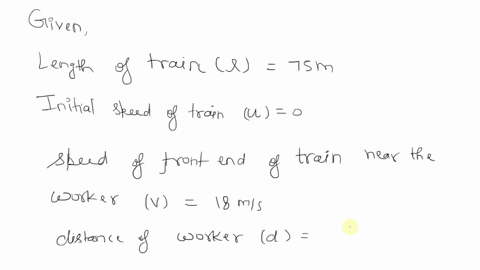 Given,
Length of train (l) = 75m
Initial speed of train (u) = 0
speed of front end of train near the
worker (v) = 18 m/s
distance of worker (d) =